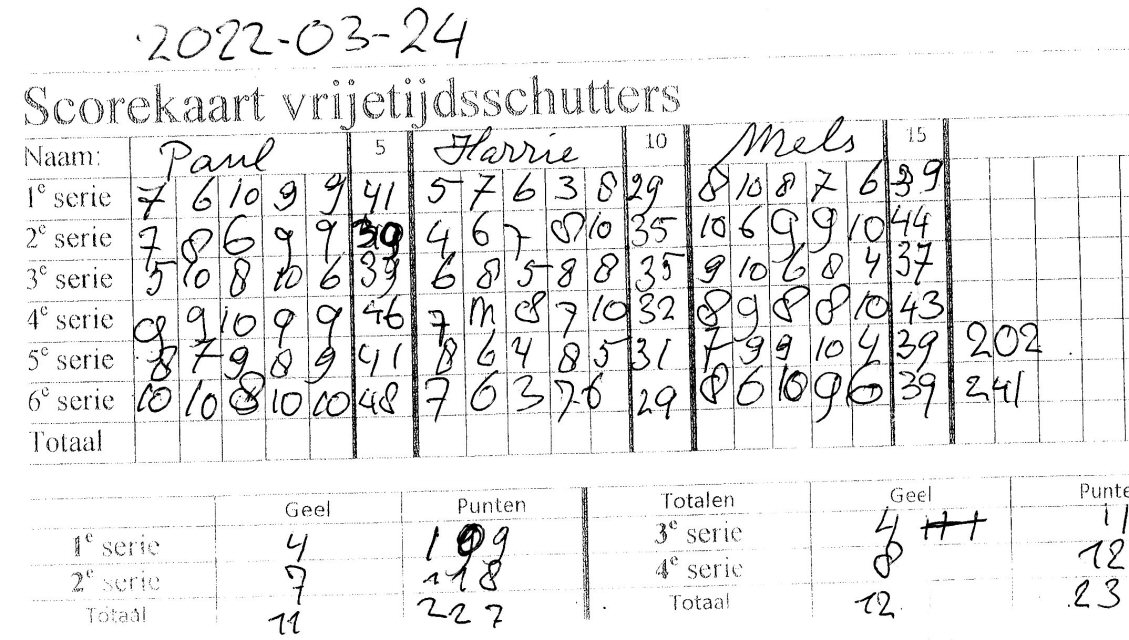 2022-03-24
Scorekaart vrijetijdsschutters
Naam: Paul 5 Harrie 10 Mels 15
1e serie 7 6 10 9 9 41 5 7 6 3 8 29 8 10 8 7 6 39
2e serie 7 8 6 9 9 39 4 6 7 8 10 35 10 6 9 9 10 44
3e serie 5 10 8 10 6 39 6 8 5 8 8 35 9 10 6 8 4 37
4e serie 9 9 10 9 9 46 7 m 8 7 10 32 8 9 8 8 10 43
5e serie 8 7 9 8 9 41 8 6 4 8 5 31 7 9 9 10 4 39 202
6e serie 10 10 8 10 10 48 7 6 3 7 6 29 8 6 10 9 6 39 241
Totaal
Geel Punten Totalen Geel Punte
1e serie 4 109 3e serie 4 11
2e serie 7 118 4e serie 8 12
Totaal 11 227 Totaal 12 23